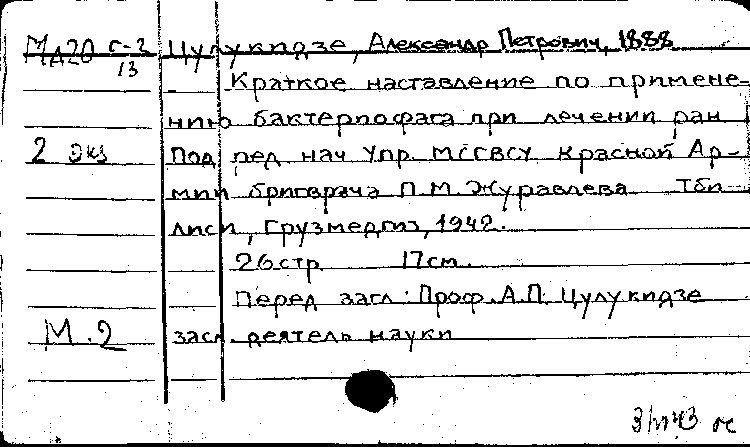 МА20 Г-2 Цулукидзе, Александр Петрович, 1888
13
Краткое наставление по примене-
нию бактерпофага при лечении ран
2 экз Под ред. нач Упр. МСГВСУ Красной Ар-
мии бригврача П.М. Журавлева Тби
лиси, Грузмедгиз, 1942.
26стр 17см.
Перед загл: Проф. А.П. Цулукидзе
М.2 засл. деятель науки